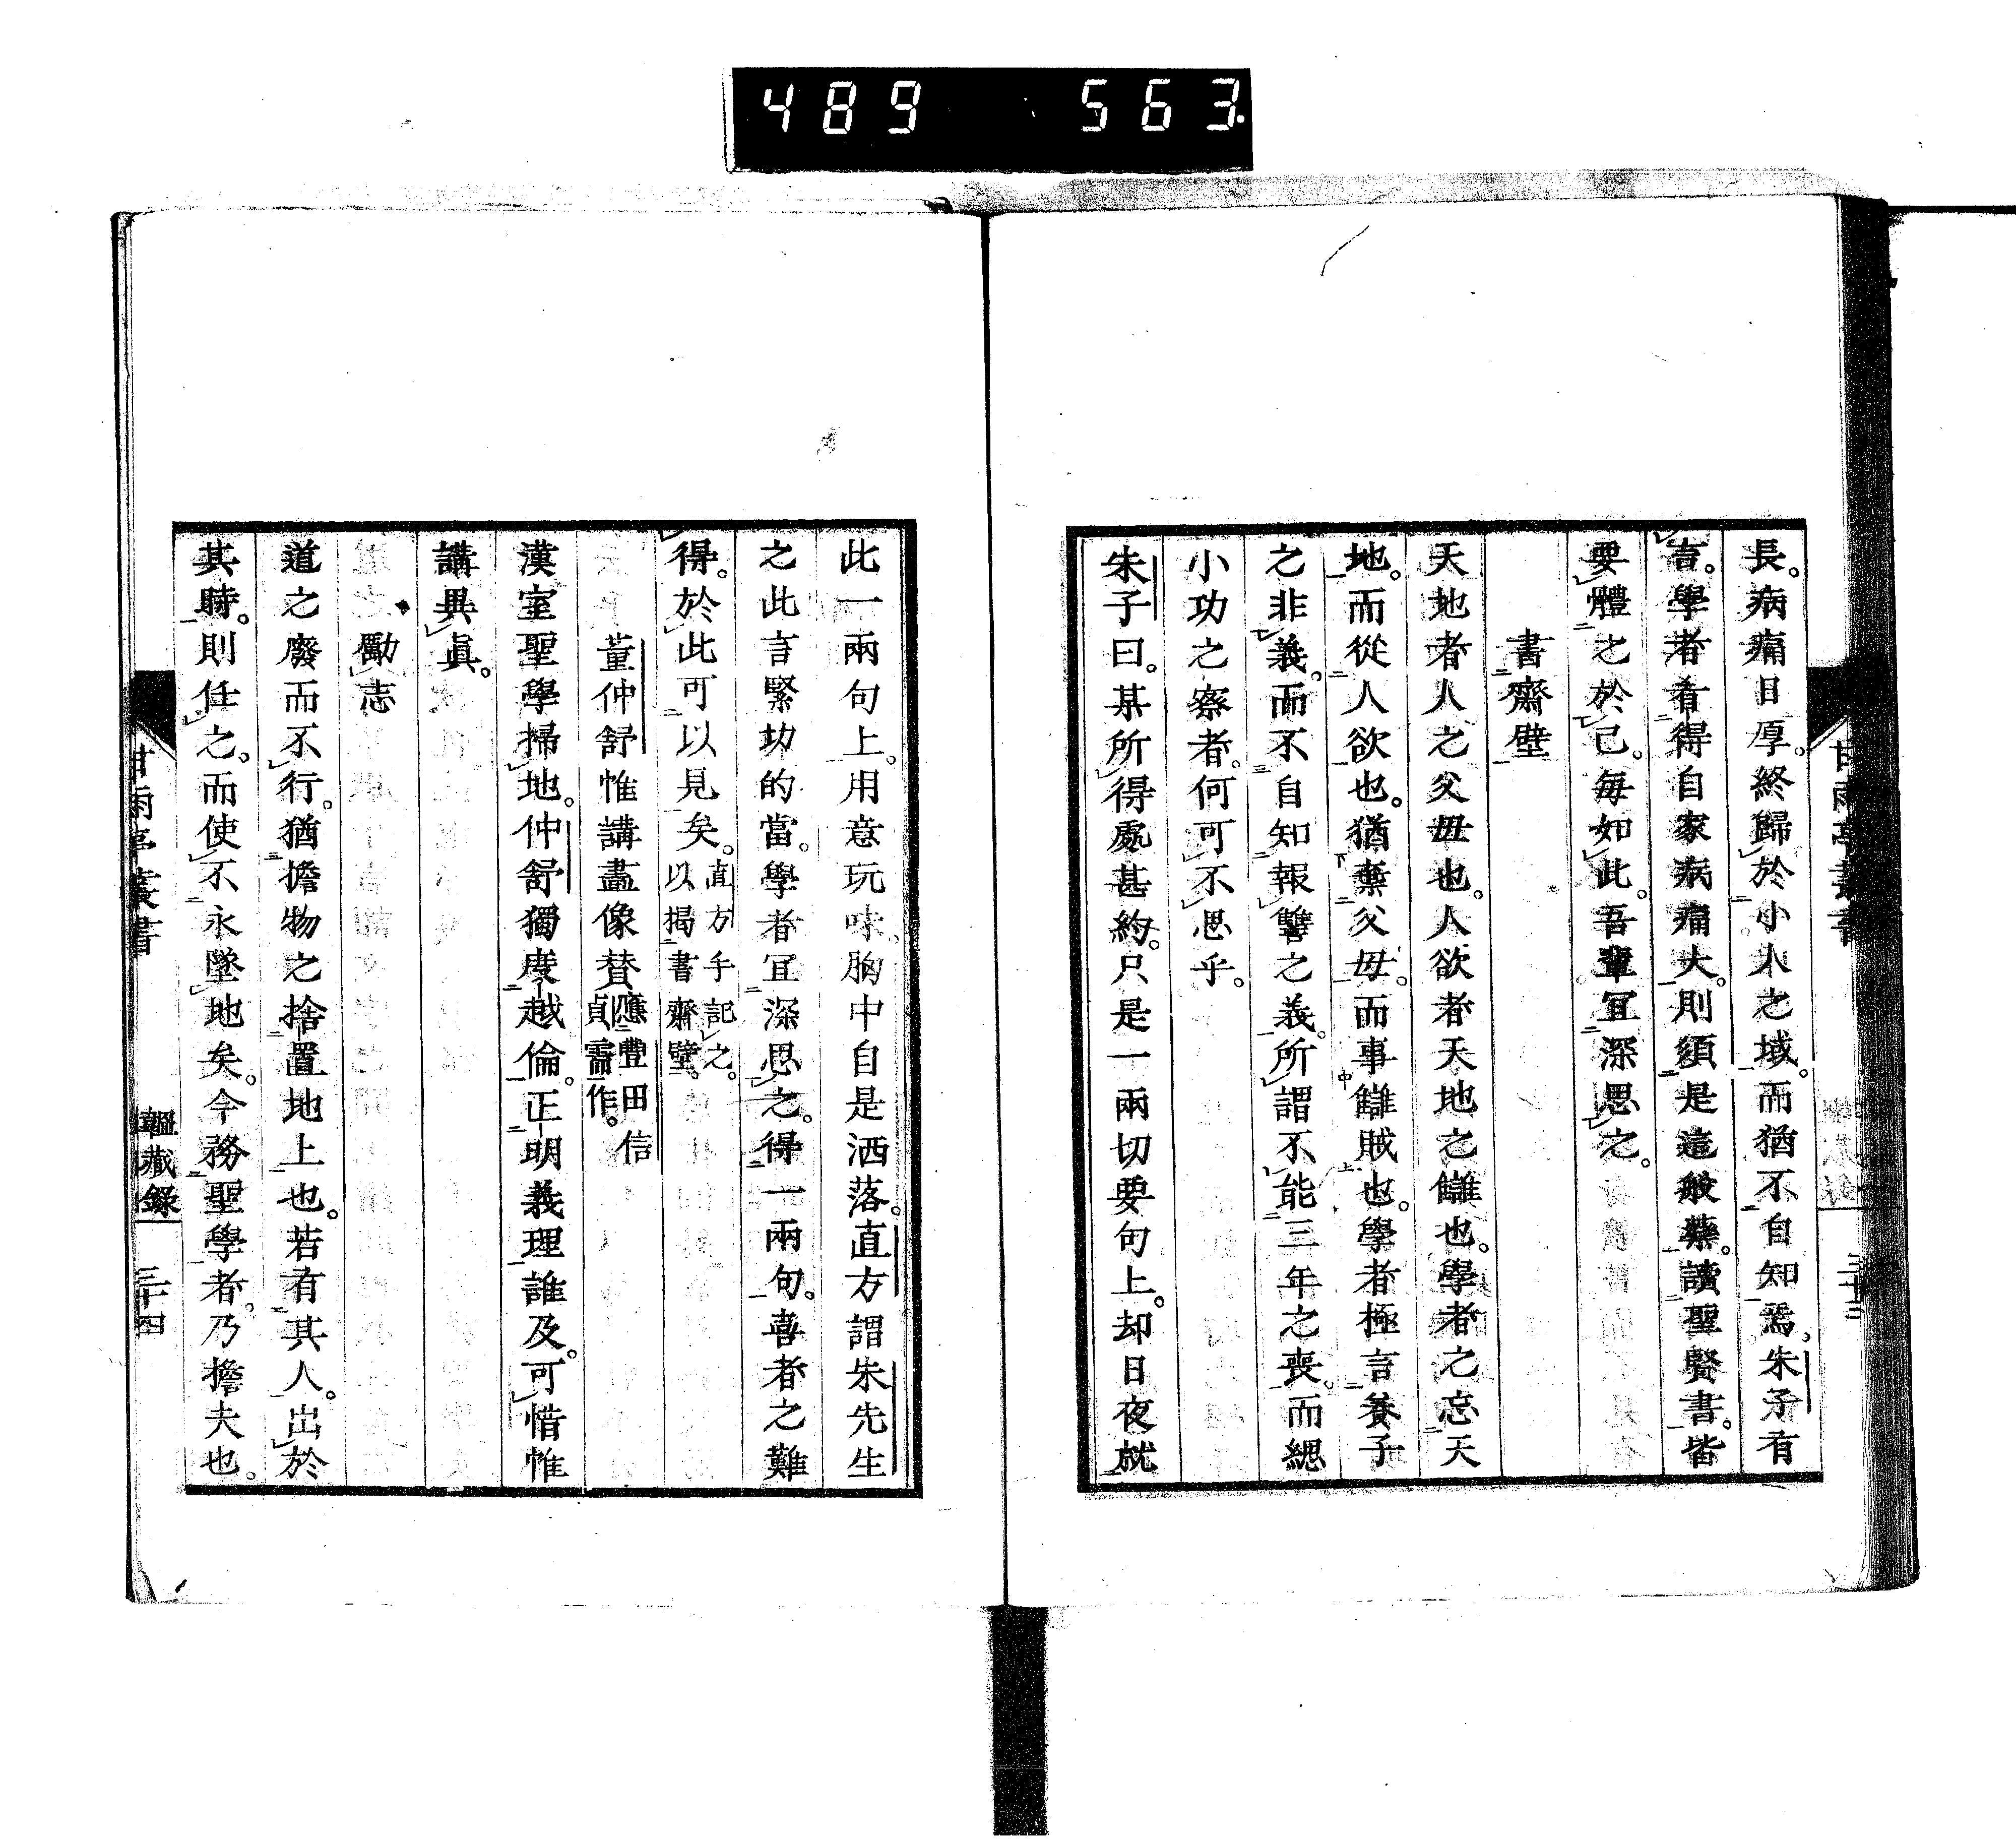 489 563
長。病痛日厚。終歸於小人之域。而猶不自知焉。朱子有
言。學者看得自家病痛大。則須是這般藥。讀聖賢書。皆
要體之於己。每如此。吾輩宜深思之。
書齋壁
天地者人之父毋也。人欲者天地之讎也。學者之忘天
地。而從人欲也。猶棄父毋。而事讎賊也。學者極言養子
之非義。而不自知報讐之義。所謂不能三年之喪。而緦
小功之察者。何可不思乎。
朱子曰。某所得處甚約。只是一兩切要句上。却日夜就
此一兩句上。用意玩味。胸中自是洒落。直方謂朱先生
之此言緊切的當。學者宜深思之。得一兩句。喜者之難
得。於此可以見矣。直方手記之。以揭書齋壁。
董仲舒惟講盡像賛應豐田信貞需作。
漢室聖學掃地。仲舒獨度越倫。正明義理誰及。可惜惟
講異眞。
勵志
道之廢而不行。猶擔物之捨置地上也。若有其人。出於
其時。則任之。而使不永墜地矣。今務聖學者。乃擔夫也。
甘雨亭叢書 韞藏錄 三十四